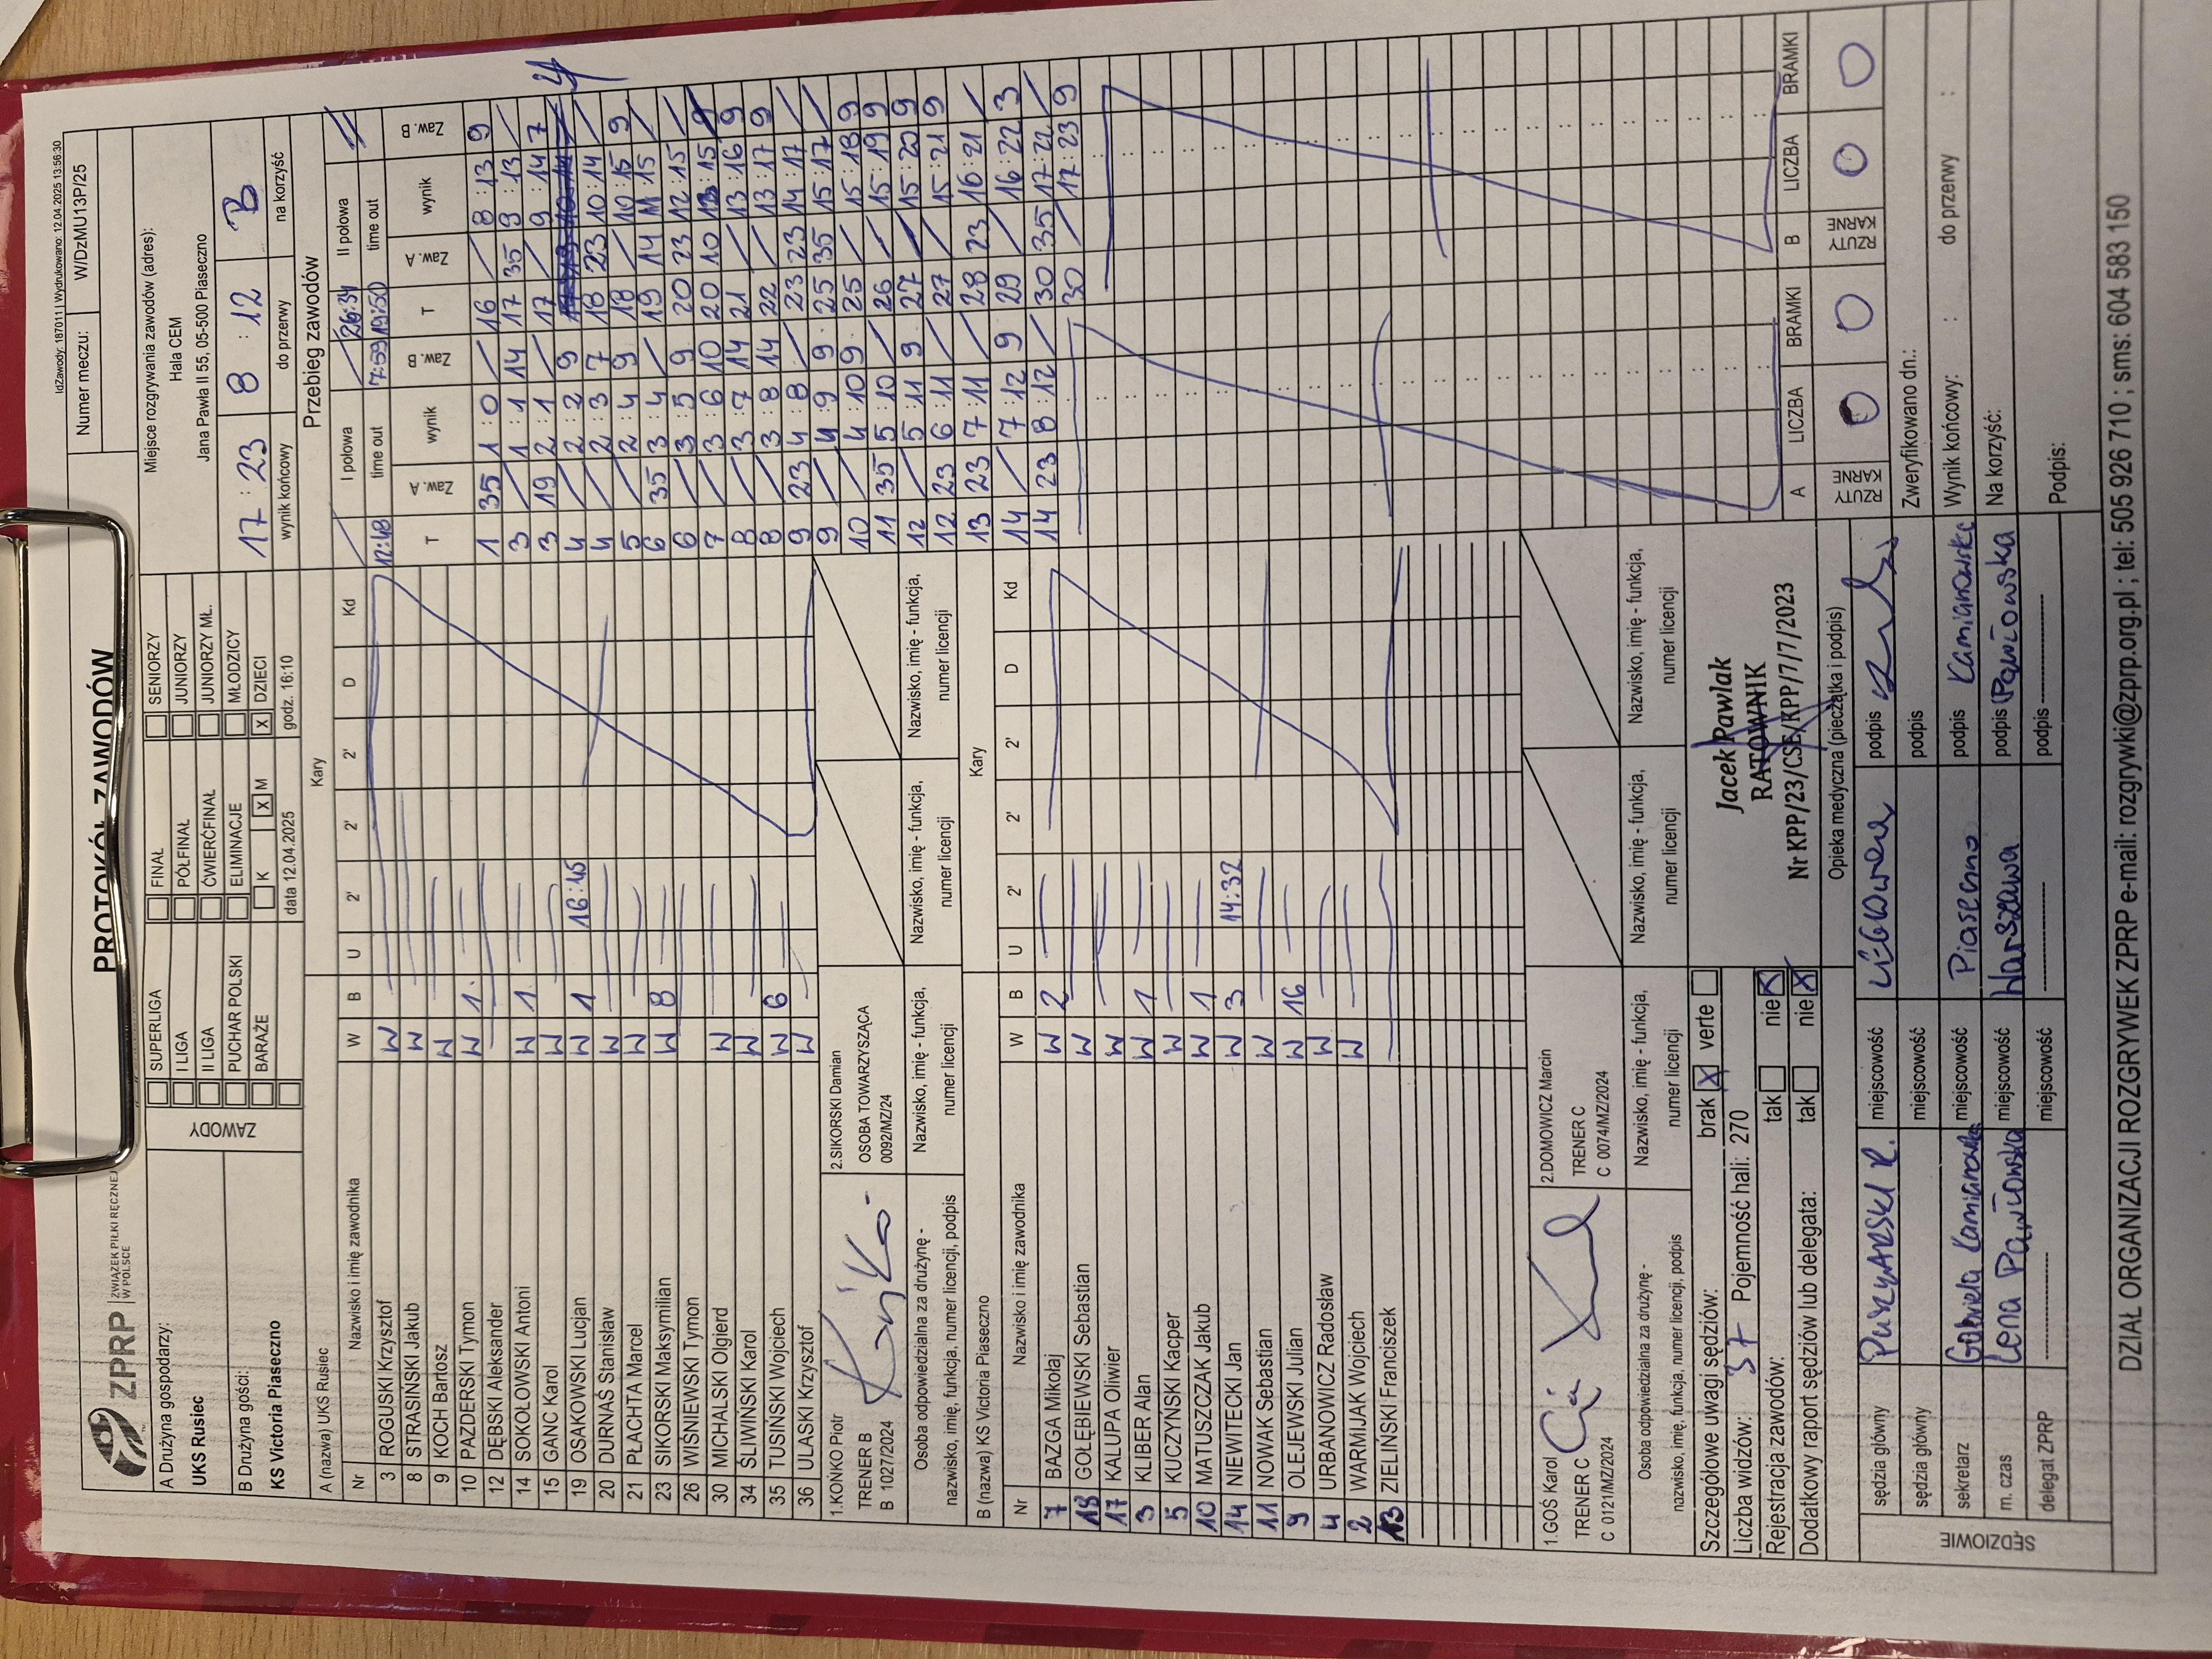 IdZawody: 187011 | Wydrukowano: 12.04.2025 13:56:30
ZPRP | ZWIĄZEK PIŁKI RĘCZNEJ W POLSCE
PROTOKÓŁ ZAWODÓW
Numer meczu: W/DzMU13P/25
A Drużyna gospodarzy:
UKS Rusiec
B Drużyna gości:
KS Victoria Piaseczno
ZAWODY
SUPERLIGA FINAŁ SENIORZY
I LIGA PÓŁFINAŁ JUNIORZY
II LIGA ĆWIERĆFINAŁ JUNIORZY MŁ.
PUCHAR POLSKI ELIMINACJE MŁODZICY
BARAŻE K X M X DZIECI
data 12.04.2025 godz. 16:10
Miejsce rozgrywania zawodów (adres):
Hala CEM
Jana Pawła II 55, 05-500 Piaseczno
17 : 23 8 : 12 B
wynik końcowy do przerwy na korzyść
A (nazwa) UKS Rusiec Kary
Nr Nazwisko i imię zawodnika W B U 2' 2' 2' D Kd
3 ROGUSKI Krzysztof W
8 STRASIŃSKI Jakub W
9 KOCH Bartosz W
10 PAZDERSKI Tymon W 1
12 DĘBSKI Aleksander
14 SOKOŁOWSKI Antoni W 1
15 GANC Karol W
19 OSAKOWSKI Lucjan W 1 16:45
20 DURNAŚ Stanisław W
21 PŁACHTA Marcel W
23 SIKORSKI Maksymilian W 8
26 WIŚNIEWSKI Tymon
30 MICHALSKI Olgierd W
34 ŚLIWIŃSKI Karol W
35 TUSIŃSKI Wojciech W 6
36 ULASKI Krzysztof W
1.KOŃKO Piotr
TRENER B
B 1027/2024
2.SIKORSKI Damian
OSOBA TOWARZYSZĄCA
0092/MZ/24
Osoba odpowiedzialna za drużynę -
nazwisko, imię, funkcja, numer licencji, podpis
Nazwisko, imię - funkcja, numer licencji
Nazwisko, imię - funkcja, numer licencji
Nazwisko, imię - funkcja, numer licencji
Nazwisko, imię - funkcja, numer licencji
B (nazwa) KS Victoria Piaseczno Kary
Nr Nazwisko i imię zawodnika W B U 2' 2' 2' D Kd
7 BAZGA Mikołaj W 2
18 GOŁĘBIEWSKI Sebastian W
17 KALUPA Oliwier W
3 KLIBER Alan W 1
5 KUCZYŃSKI Kacper W
10 MATUSZCZAK Jakub W 1
14 NIEWITECKI Jan W 3 14:32
11 NOWAK Sebastian W
9 OLEJEWSKI Julian W 16
4 URBANOWICZ Radosław W
2 WARMIJAK Wojciech W
13 ZIELIŃSKI Franciszek
1.GOŚ Karol
TRENER C
C 0121/MZ/2024
2.DOMOWICZ Marcin
TRENER C
C 0074/MZ/2024
Osoba odpowiedzialna za drużynę -
nazwisko, imię, funkcja, numer licencji, podpis
Nazwisko, imię - funkcja, numer licencji
Nazwisko, imię - funkcja, numer licencji
Nazwisko, imię - funkcja, numer licencji
Nazwisko, imię - funkcja, numer licencji
Przebieg zawodów
I połowa 26:34 II połowa
12:48 time out 7:59 19:50 time out
T Zaw. A wynik Zaw. B T Zaw. A wynik Zaw. B
1 35 1 : 0 / 16 / 8 : 13 9
3 / 1 : 1 14 17 35 9 : 13 /
3 19 2 : 1 / 17 / 9 : 14 7
4 / 2 : 2 9
4 / 2 : 3 7 18 23 10 : 14 /
5 / 2 : 4 9 18 / 10 : 15 9
6 35 3 : 4 / 19 14 11 : 15 /
6 / 3 : 5 9 20 23 12 : 15 /
7 / 3 : 6 10 20 10 13 : 15
8 / 3 : 7 14 21 / 13 : 16 9
8 / 3 : 8 14 22 / 13 : 17 9
9 23 4 : 8 / 23 23 14 : 17 /
9 / 4 : 9 9 25 35 15 : 17 /
10 / 4 : 10 9 25 / 15 : 18 9
11 35 5 : 10 / 26 / 15 : 19 9
12 / 5 : 11 9 27 / 15 : 20 9
12 23 6 : 11 / 27 / 15 : 21 9
13 23 7 : 11 / 28 23 16 : 21 /
14 / 7 : 12 9 29 / 16 : 22 3
14 23 8 : 12 / 30 35 17 : 22 /
30 / 17 : 23 9
A RZUTY KARNE LICZBA BRAMKI 0 B RZUTY KARNE LICZBA 0 BRAMKI 0
Szczegółowe uwagi sędziów: brak X verte
Liczba widzów: 37 Pojemność hali: 270
Rejestracja zawodów: tak nie X
Dodatkowy raport sędziów lub delegata: tak nie X
Jacek Pawlak
RATOWNIK
Nr KPP/23/CSE/KPP/7/7/2023
Opieka medyczna (pieczątka i podpis)
SĘDZIOWIE
sędzia główny miejscowość podpis
sędzia główny miejscowość podpis
sekretarz Gabriela Kamianowska miejscowość Piaseczno podpis Kamianowska
m. czas Lena Pawłowska miejscowość Warszawa podpis Pawłowska
delegat ZPRP miejscowość podpis
Zweryfikowano dn.:
Wynik końcowy: : do przerwy :
Na korzyść:
Podpis:
DZIAŁ ORGANIZACJI ROZGRYWEK ZPRP e-mail: rozgrywki@zprp.org.pl ; tel: 505 926 710 ; sms: 604 583 150